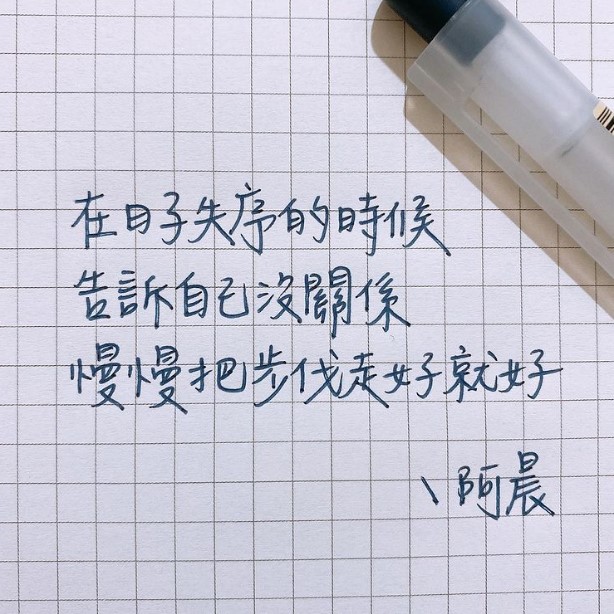 在日子失序的時候
告訴自己沒關係
慢慢把步伐走好就好
\阿晨